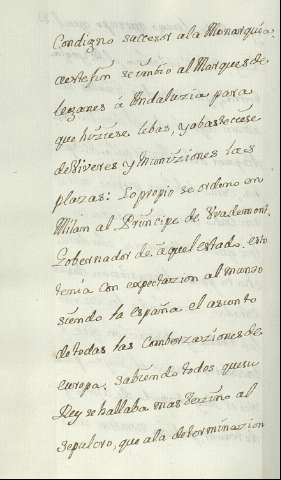 Condigno succesor ala Monarquia,
aestefin seembio al Marques de
leganes á Andaluzia para
que hiziese lebas, y abasteciese
de Viveres y Moniziones las
plazas: Lo propio se ordeno en
Milan al Principe de Vrademont,
Gobernador de aquel estado, esto
tenia con expectazion al mundo
siendo la españa el asunto
de todas las Comberzaziones de
europa, sabiendo todos que su
Rey se hallaba mas vezino al
sepulcro, que ala determinazion